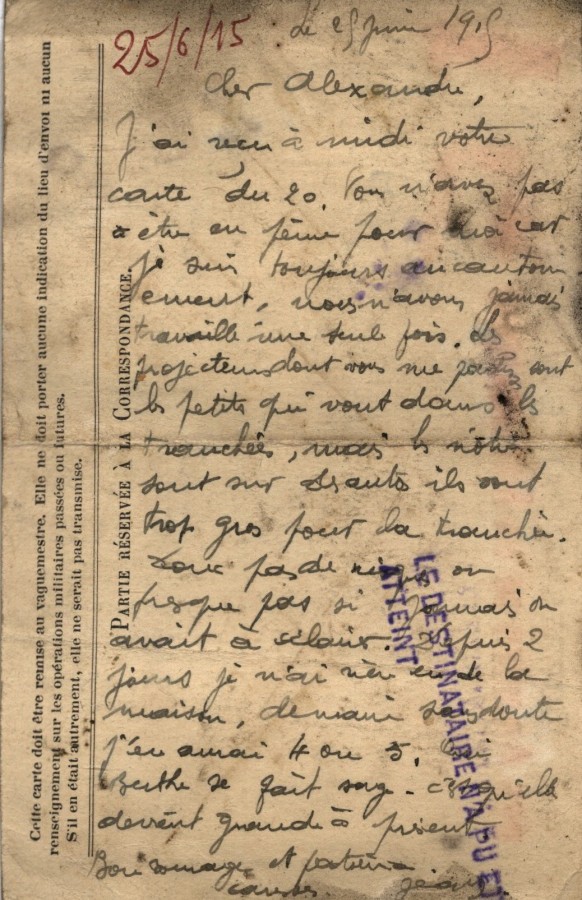 25/6/15
Le 25 juin 1915
Cher Alexandre,
J'ai reçu à midi votre
carte du 20. Vous n'avez pas
à être en peine pour moi car
je suis toujours au cantonn
ement, nous n'avons jamais
travaillé une seule fois. Les
projecteurs dont vous me parlez sont
les petits qui vont dans les
tranchées, mais les nôtres
sont sur des autos ils sont
trop gros pour la tranchée.
Donc pas de risque ou
presque pas si jamais on
avait à éclairer. Depuis 2
jours je n'ai rien eu de la
maison, demain sans doute
j'en aurai 4 ou 5.
Berthe se fait sage - c'est qu'elle
devient grande à présent
Bon courage et patience
Jean
PARTIE RÉSERVÉE À LA CORRESPONDANCE.
Cette carte doit être remise au vaguemestre. Elle ne doit porter aucune indication du lieu d'envoi ni aucun
renseignement sur les opérations militaires passées ou futures.
S'il en était autrement, elle ne serait pas transmise.
LE DESTINATAIRE N'A PU ET
ATTEINT